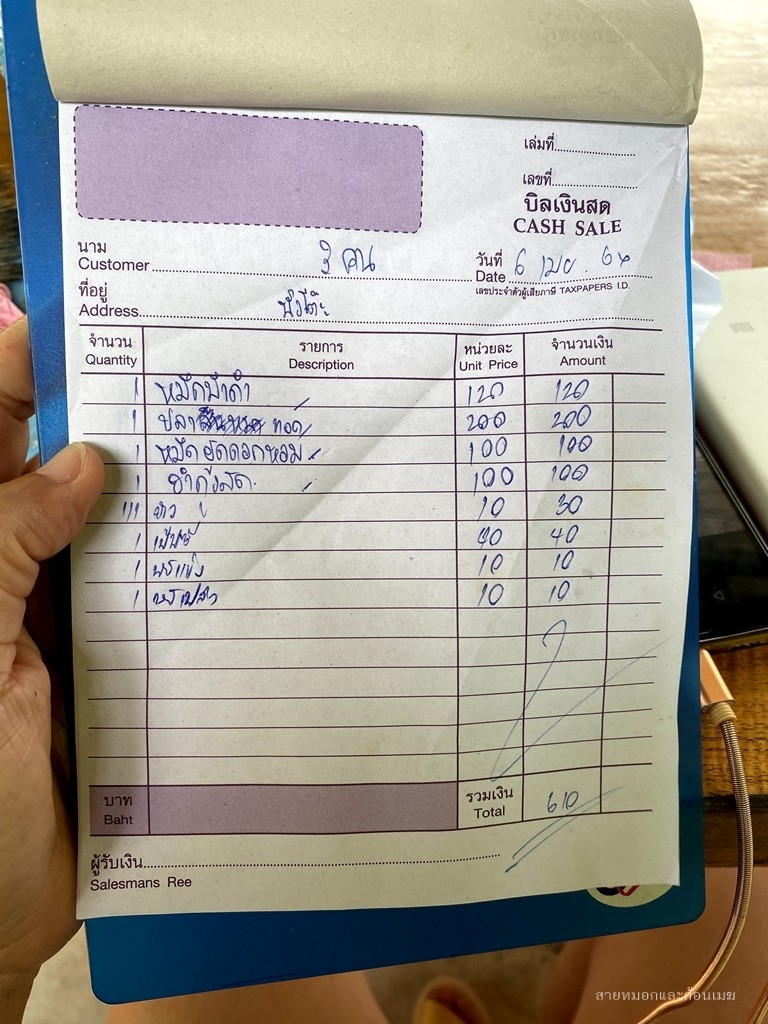 เล่มที่
เลขที่
บิลเงินสด
CASH SALE
นาม
Customer 3 คน
วันที่
Date 6 เมย. 64
ที่อยู่
Address
เลขประจำตัวผู้เสียภาษี TAXPAPERS I.D.
จำนวน รายการ หน่วยละ จำนวนเงิน
Quantity Description Unit Price Amount
1 หมึกน้ำดำ 120 120
1 ปลา ทอด 200 200
1 หมึกผัดดอกหอม 100 100
1 100 100
111 ข้าว 10 30
1 เป๊ปซี่ 40 40
1 10 10
1 10 10
บาท รวมเงิน
Baht Total 610
ผู้รับเงิน
Salesmans Ree
สายหมอกและก้อนเมฆ